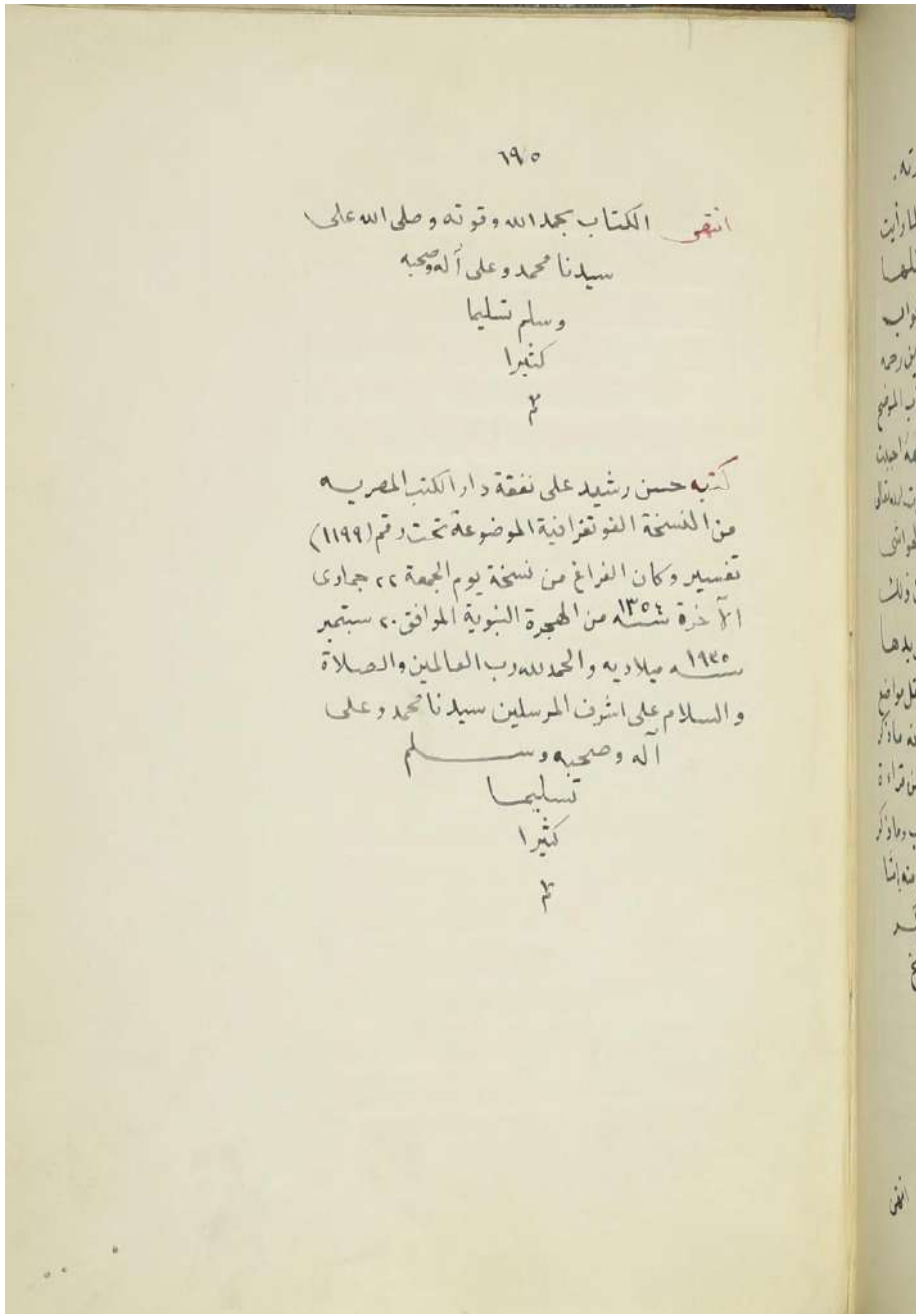 ٦٩٥
انتهى الكتاب بحمد الله وقوته وصلى الله على
سيدنا محمد وعلى آله وصحبه
وسلم تسليما
كثيرا
م
كتبه حسن رشيد على نفقة دار الكتب المصريه
من النسخة الفوتغرافية الموضوعة تحت رقم (١١٩٩)
تفسير وكان الفراغ من نسخة يوم الجمعة ٢٢ جمادى
الآخرة سنة ١٣٥٤ من الهجرة النبوية الموافق ٢٠ سبتمبر
سنه ١٩٣٥ ميلاديه والحمد لله رب العالمين والصلاة
والسلام على اشرف المرسلين سيدنا محمد وعلى
آله وصحبه وسلم
تسليما
كثيرا
م
رأيت
رحمه
الموضح
احببت
الحواشى
ذلك
مواضع
ما ذكر
قراءة
وما ذكر
انتهى